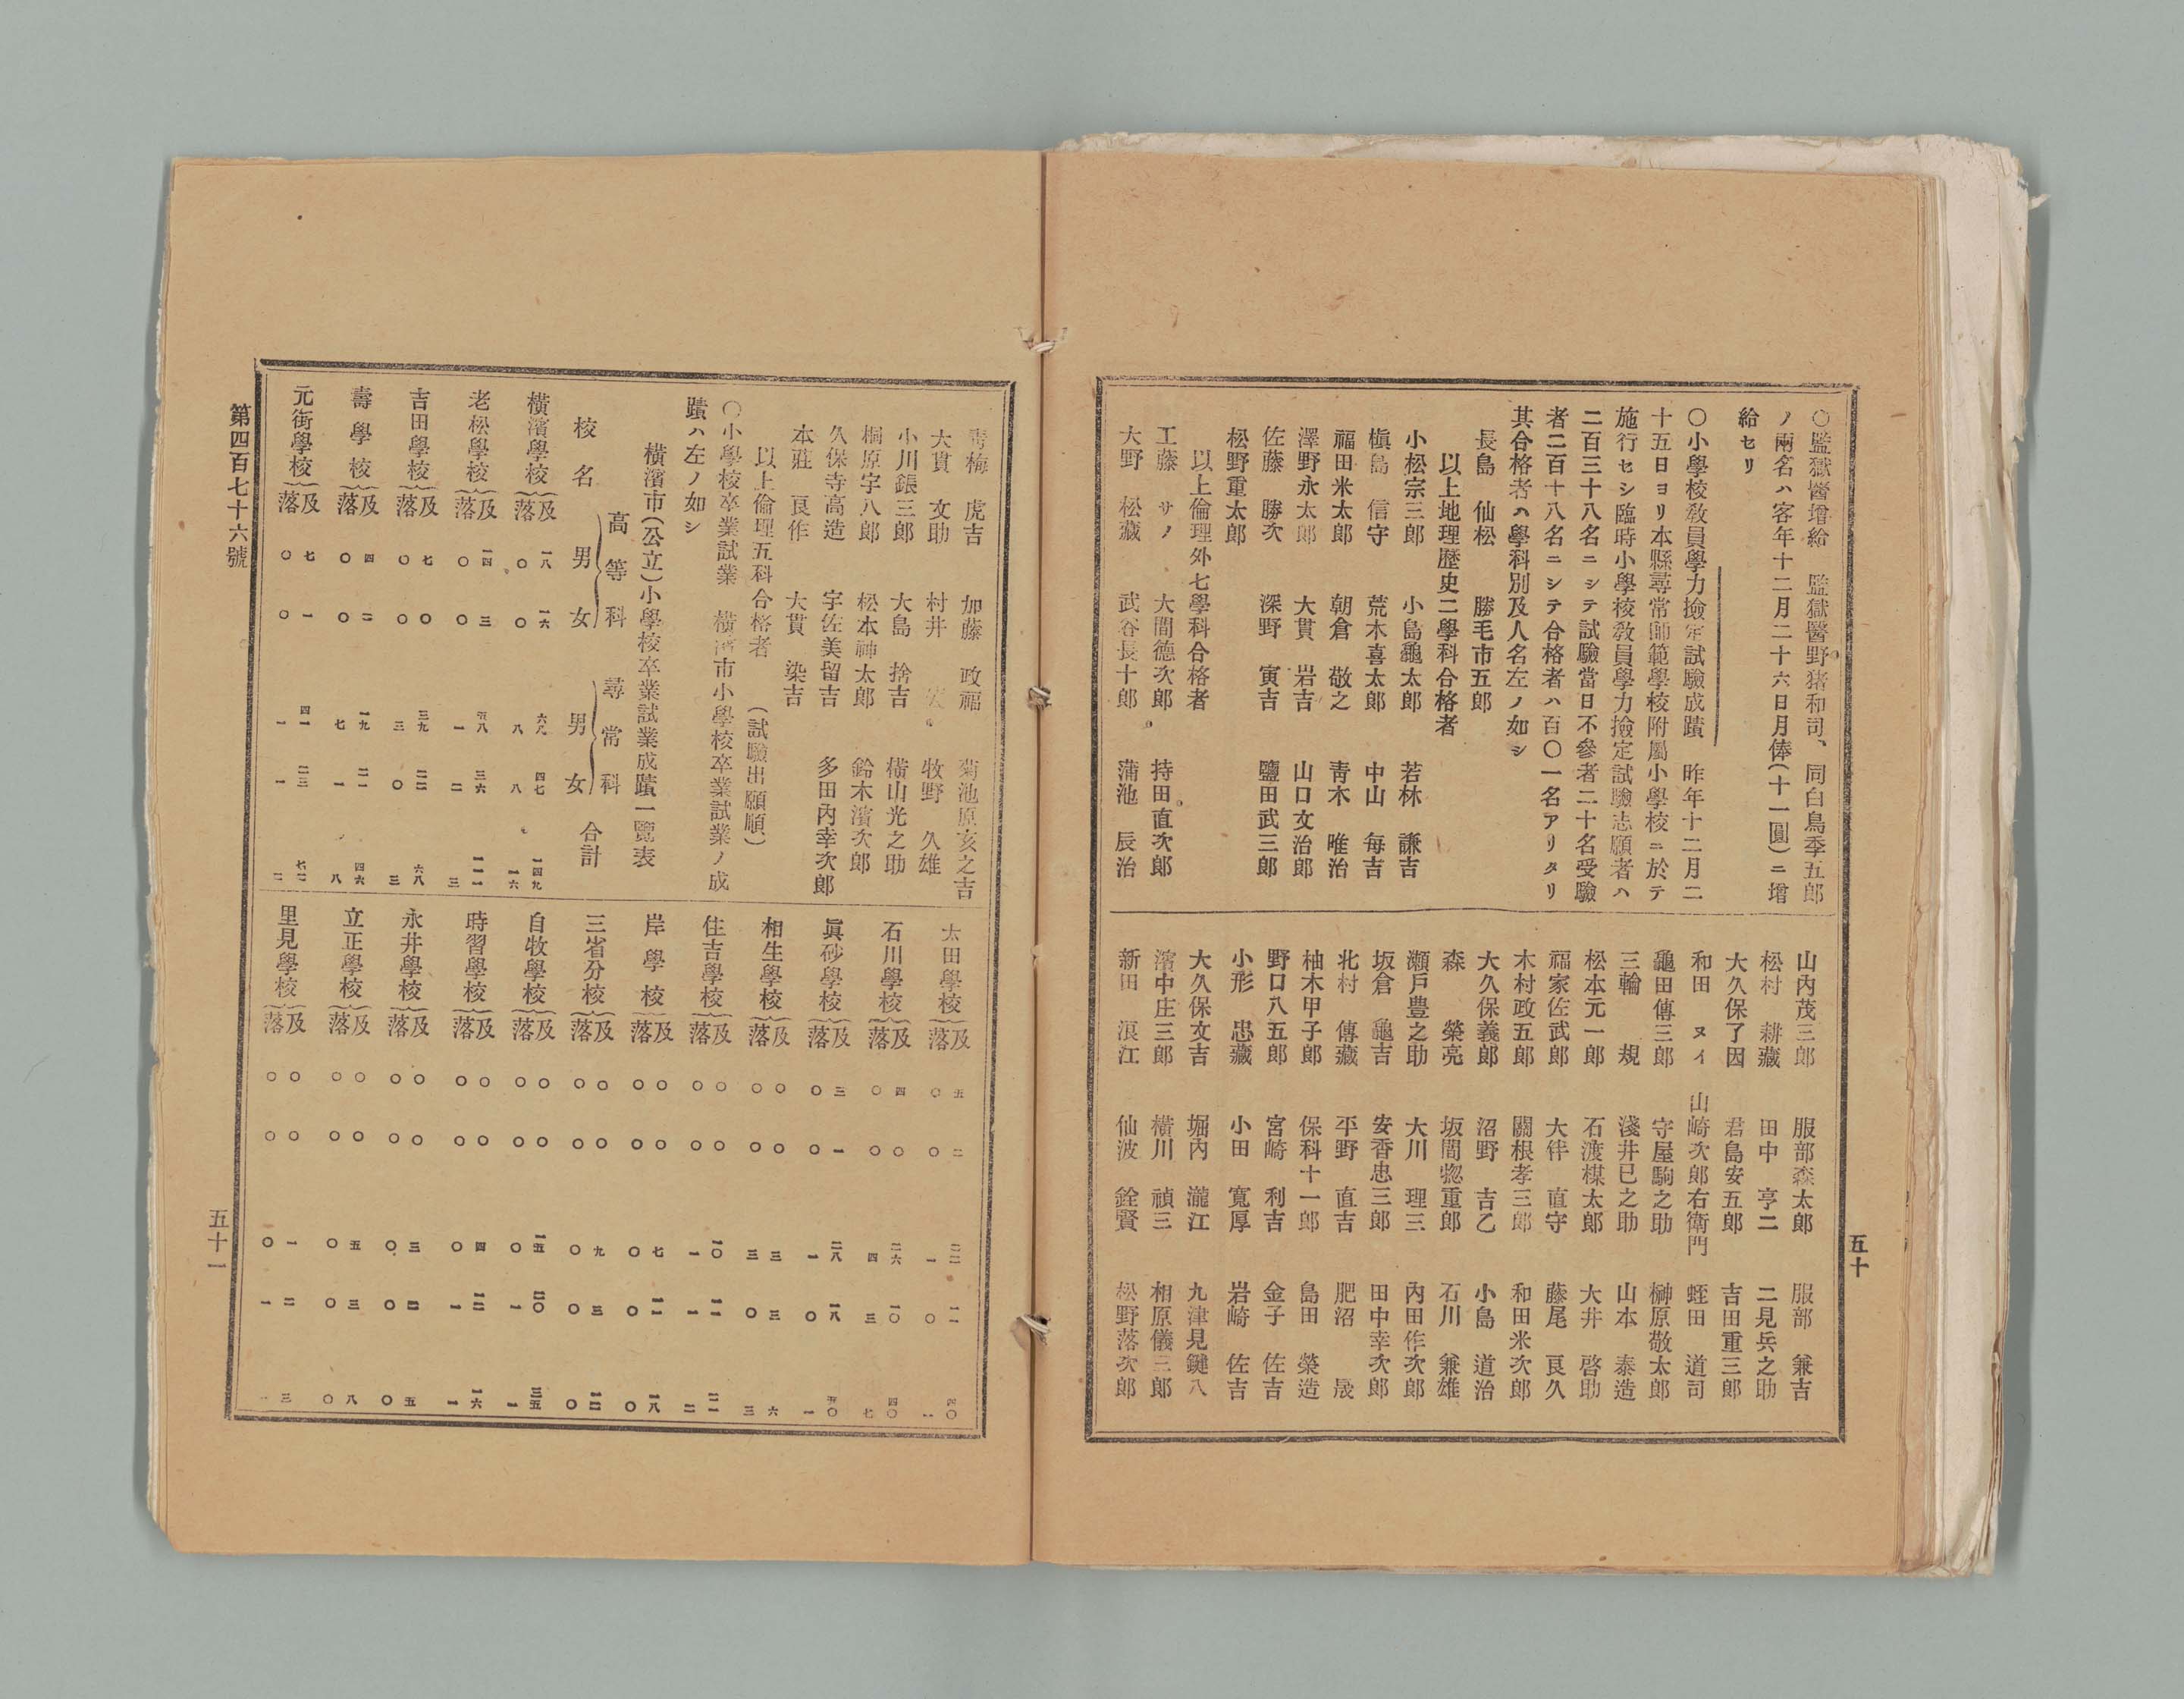 五十
○監獄醫增給　監獄醫野猪和司、同白鳥季五郎
ノ兩名ハ客年十二月二十六日月俸(十一圓)ニ增
給セリ
○小學校敎員學力撿定試驗成蹟　昨年十二月二
十五日ヨリ本縣尋常師範學校附屬小學校ニ於テ
施行セシ臨時小學校敎員學力撿定試驗志願者ハ
二百三十八名ニシテ試驗當日不參者二十名受驗
者二百十八名ニシテ合格者ハ百〇一名アリタリ
其合格者ハ學科別及人名左ノ如シ
長島　仙松　勝毛市五郎
以上地理歷史二學科合格者
小松宗三郎　小島龜太郎　若林　謙吉
槇島　信守　荒木喜太郎　中山　每吉
福田米太郎　朝倉　敬之　靑木　唯治
澤野永太郎　大貫　岩吉　山口文治郎
佐藤　勝次　深野　寅吉　鹽田武三郎
松野重太郎
以上倫理外七學科合格者
工藤　サノ　大間德次郎　持田直次郎
大野　松藏　武谷長十郎　蒲池　辰治
山內茂三郎　服部森太郎　服部　兼吉
松村　耕藏　田中　亨二　二見兵之助
大久保了因　君島安五郎　吉田重三郎
和田　ヌイ　山崎次郎右衛門　蛭田　道司
龜田傳三郎　守屋駒之助　榊原敬太郎
三輪　規　淺井巳之助　山本　泰造
松本元一郎　石渡楳太郎　大井　啓助
福家佐武郎　大伴　直守　藤尾　良久
木村政五郎　關根孝三郎　和田米次郎
大久保義郎　沼野　吉乙　小島　道治
森　榮亮　坂間惣重郎　石川　兼雄
瀨戶豊之助　大川　理三　內田作次郎
坂倉　龜吉　安香忠三郎　田中幸次郎
北村　傳藏　平野　直吉　肥沼　晟
柚木甲子郎　保科十一郎　島田　榮造
野口八五郎　宮崎　利吉　金子　佐吉
小形　忠藏　小田　寬厚　岩崎　佐吉
大久保文吉　堀內　瀧江　九津見鍵八
濱中庄三郎　橫川　禎三　相原儀三郎
新田　浪江　仙波　銓賢　松野落次郎
靑梅　虎吉　加藤　政福　菊池原亥之吉
大貫　文助　村井　牧野　久雄
小川鋹三郎　大島　捨吉　橫山光之助
桐原宇八郎　松本神太郎　鈴木濱次郎
久保寺高造　宇佐美留吉　多田內幸次郎
本莊　良作　大貫　染吉
以上倫理五科合格者　(試驗出願順)
○小學校卒業試業　橫濱市小學校卒業試業ノ成
蹟ハ左ノ如シ
橫濱市(公立)小學校卒業試業成蹟一覽表
校名　高等科　男　女　尋常科　男　女　合計
橫濱學校　及　一八　一六　六九　四七　一四九
落　〇　〇　八　八　一六
老松學校　及　一四　三　五八　三六　一一一
落　〇　〇　一　二　三
吉田學校　及　七　〇　三九　二二　六八
落　〇　〇　三　〇　三
壽學校　及　四　二　一九　二一　四六
落　〇　〇　七　一　八
元街學校　及　七　一　四一　二三　七二
落　〇　〇　一　一　二
太田學校　及　五　二　二二　一一　四〇
落　〇　〇　一　〇　一
石川學校　及　四　〇　二六　一〇　四〇
落　〇　〇　四　三　七
眞砂學校　及　三　一　二八　一八　五〇
落　〇　〇　一　〇　一
相生學校　及　〇　〇　三　三　六
落　〇　〇　三　〇　三
住吉學校　及　〇　〇　一〇　一一　二一
落　〇　〇　一　一　二
岸學校　及　〇　〇　七　一一　一八
落　〇　〇　〇　〇　〇
三省分校　及　〇　〇　九　三　一二
落　〇　〇　〇　〇　〇
自牧學校　及　〇　〇　一五　二〇　三五
落　〇　〇　〇　一　一
時習學校　及　〇　〇　四　一二　一六
落　〇　〇　〇　一　一
永井學校　及　〇　〇　三　二　五
落　〇　〇　〇　〇　〇
立正學校　及　〇　〇　五　三　八
落　〇　〇　〇　〇　〇
里見學校　及　〇　〇　一　二　三
落　〇　〇　〇　一　一
第四百七十六號
五十一